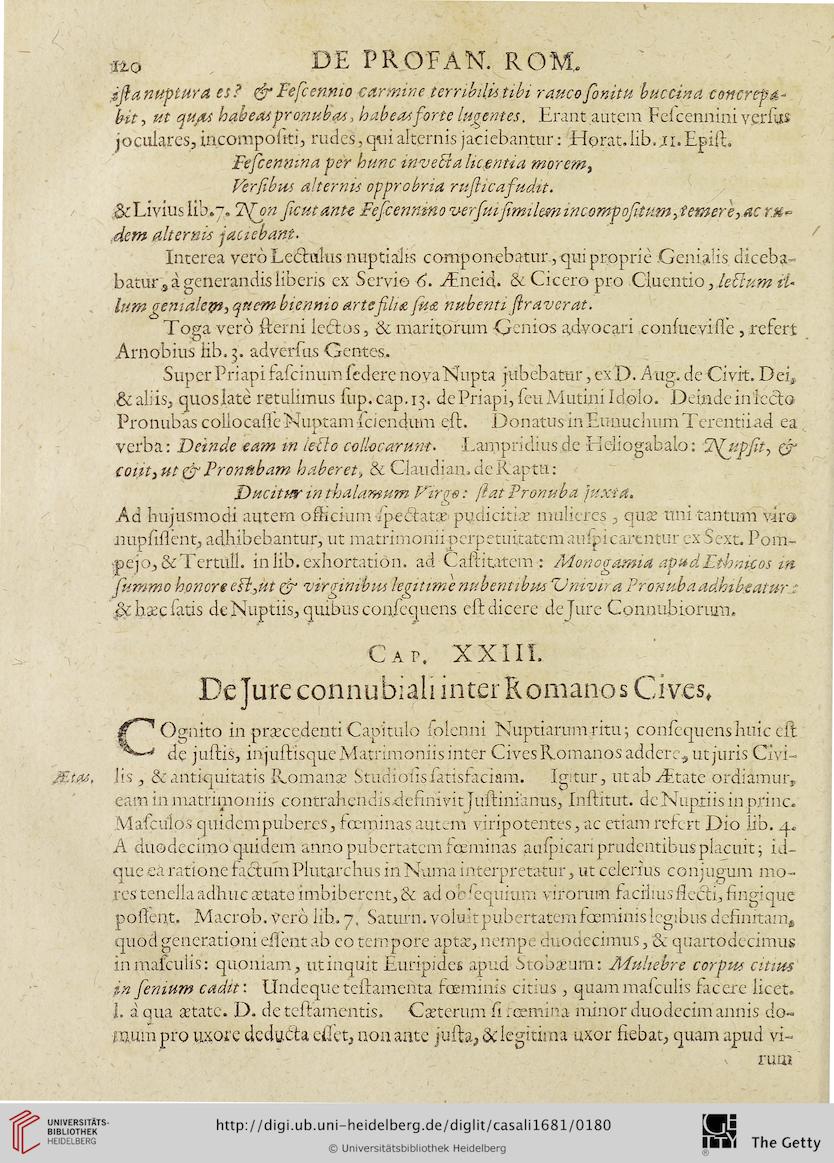 120 DE PROFAN. ROM.
iſta nuptura es? & Feſcennio carmine terribilis tibi rauco ſonitu buccina concrepa-
bit, ut quas habeas pronubas, habeas forte lugentes. Erant autem Feſcennini verſus
joculares, incompoſiti, rudes, qui alternis jaciebantur: Horat. lib. 11. Epiſt.
Feſcennina per hunc invecta licentia morem,
Verſibus alternis opprobria ruſtica fudit.
& Livius lib. 7. Non ſicut ante Feſcennino verſui ſimilem incompoſitum, temerè, ac ru-
dem alternis jaciebant.
Interea verò Lectulus nuptialis componebatur, qui propriè Genialis diceba-
batur, à generandis liberis ex Servio 6. Æneid. & Cicero pro Cluentio, lectum il-
lum genialem, quem biennio ante filiæ ſuæ nubenti ſtraverat.
Toga verò ſterni lectos, & maritorum Genios advocari conſueviſſe, refert
Arnobius lib. 3. adverſus Gentes.
Super Priapi faſcinum ſedere nova Nupta jubebatur, ex D. Aug. de Civit. Dei,
& aliis, quos latè retulimus ſup. cap. 13. de Priapi, ſeu Mutini Idolo. Deinde in lecto
Pronubas collocaſſe Nuptam ſciendum eſt. Donatus in Eunuchum Terentii ad ea
verba: Deinde eam in lecto collocarunt. Lampridius de Heliogabalo: Nupſit, &
coiit, ut & Pronubam haberet, & Claudian. de Raptu:
Ducitur in thalamum Virgo: ſtat Pronuba juxta.
Ad hujusmodi autem officium ſpectatæ pudicitiæ mulieres, quæ uni tantum viro
nupſiſſent, adhibebantur, ut matrimonii perpetuitatem auſpicarentur ex Sext. Pom-
pejo, & Tertull. in lib. exhortation. ad Caſtitatem: Monogamia apud Ethnicos in
ſummo honore eſt, ut & virginibus legitimè nubentibus Univira Pronuba adhibeatur:
& hæc ſatis de Nuptiis, quibus conſequens eſt dicere de Jure Connubiorum.
CAP. XXIII.
De Jure connubiali inter Romanos Cives.
COgnito in præcedenti Capitulo ſolenni Nuptiarum ritu; conſequens huic eſt
de juſtis, injuſtisque Matrimoniis inter Cives Romanos addere, ut juris Civi-
Ætas. lis, & antiquitatis Romanæ Studioſis ſatisfaciam. Igitur, ut ab Ætate ordiamur,
eam in matrimoniis contrahendis definivit Juſtinianus, Inſtitut. de Nuptiis in princ.
Maſculos quidem puberes, fœminas autem viripotentes, ac etiam refert Dio lib. 4.
A duodecimo quidem anno pubertatem fœminas auſpicari prudentibus placuit; id-
que ea ratione factum Plutarchus in Numa interpretatur, ut celerius conjugum mo-
res tenella adhuc ætate imbiberent, & ad obſequium virorum facilius flecti, fingique
poſſent. Macrob. verò lib. 7. Saturn. voluit pubertatem fœminis legibus definitam,
quod generationi eſſent ab eo tempore aptæ, nempe duodecimus, & quartodecimus
in maſculis: quoniam, ut inquit Euripides apud Stobæum: Muliebre corpus citius
in ſenium cadit: Undeque teſtamenta fœminis citius, quam maſculis facere licet.
l. à qua ætate. D. de teſtamentis. Cæterum ſi fœmina minor duodecim annis do-
mum pro uxore deducta eſſet, non ante juſta, & legitima uxor fiebat, quam apud vi-
rum
UNIVERSITÄTS-
BIBLIOTHEK
HEIDELBERG
http://digi.ub.uni-heidelberg.de/diglit/casali1681/0180
© Universitätsbibliothek Heidelberg
Getty
The Getty